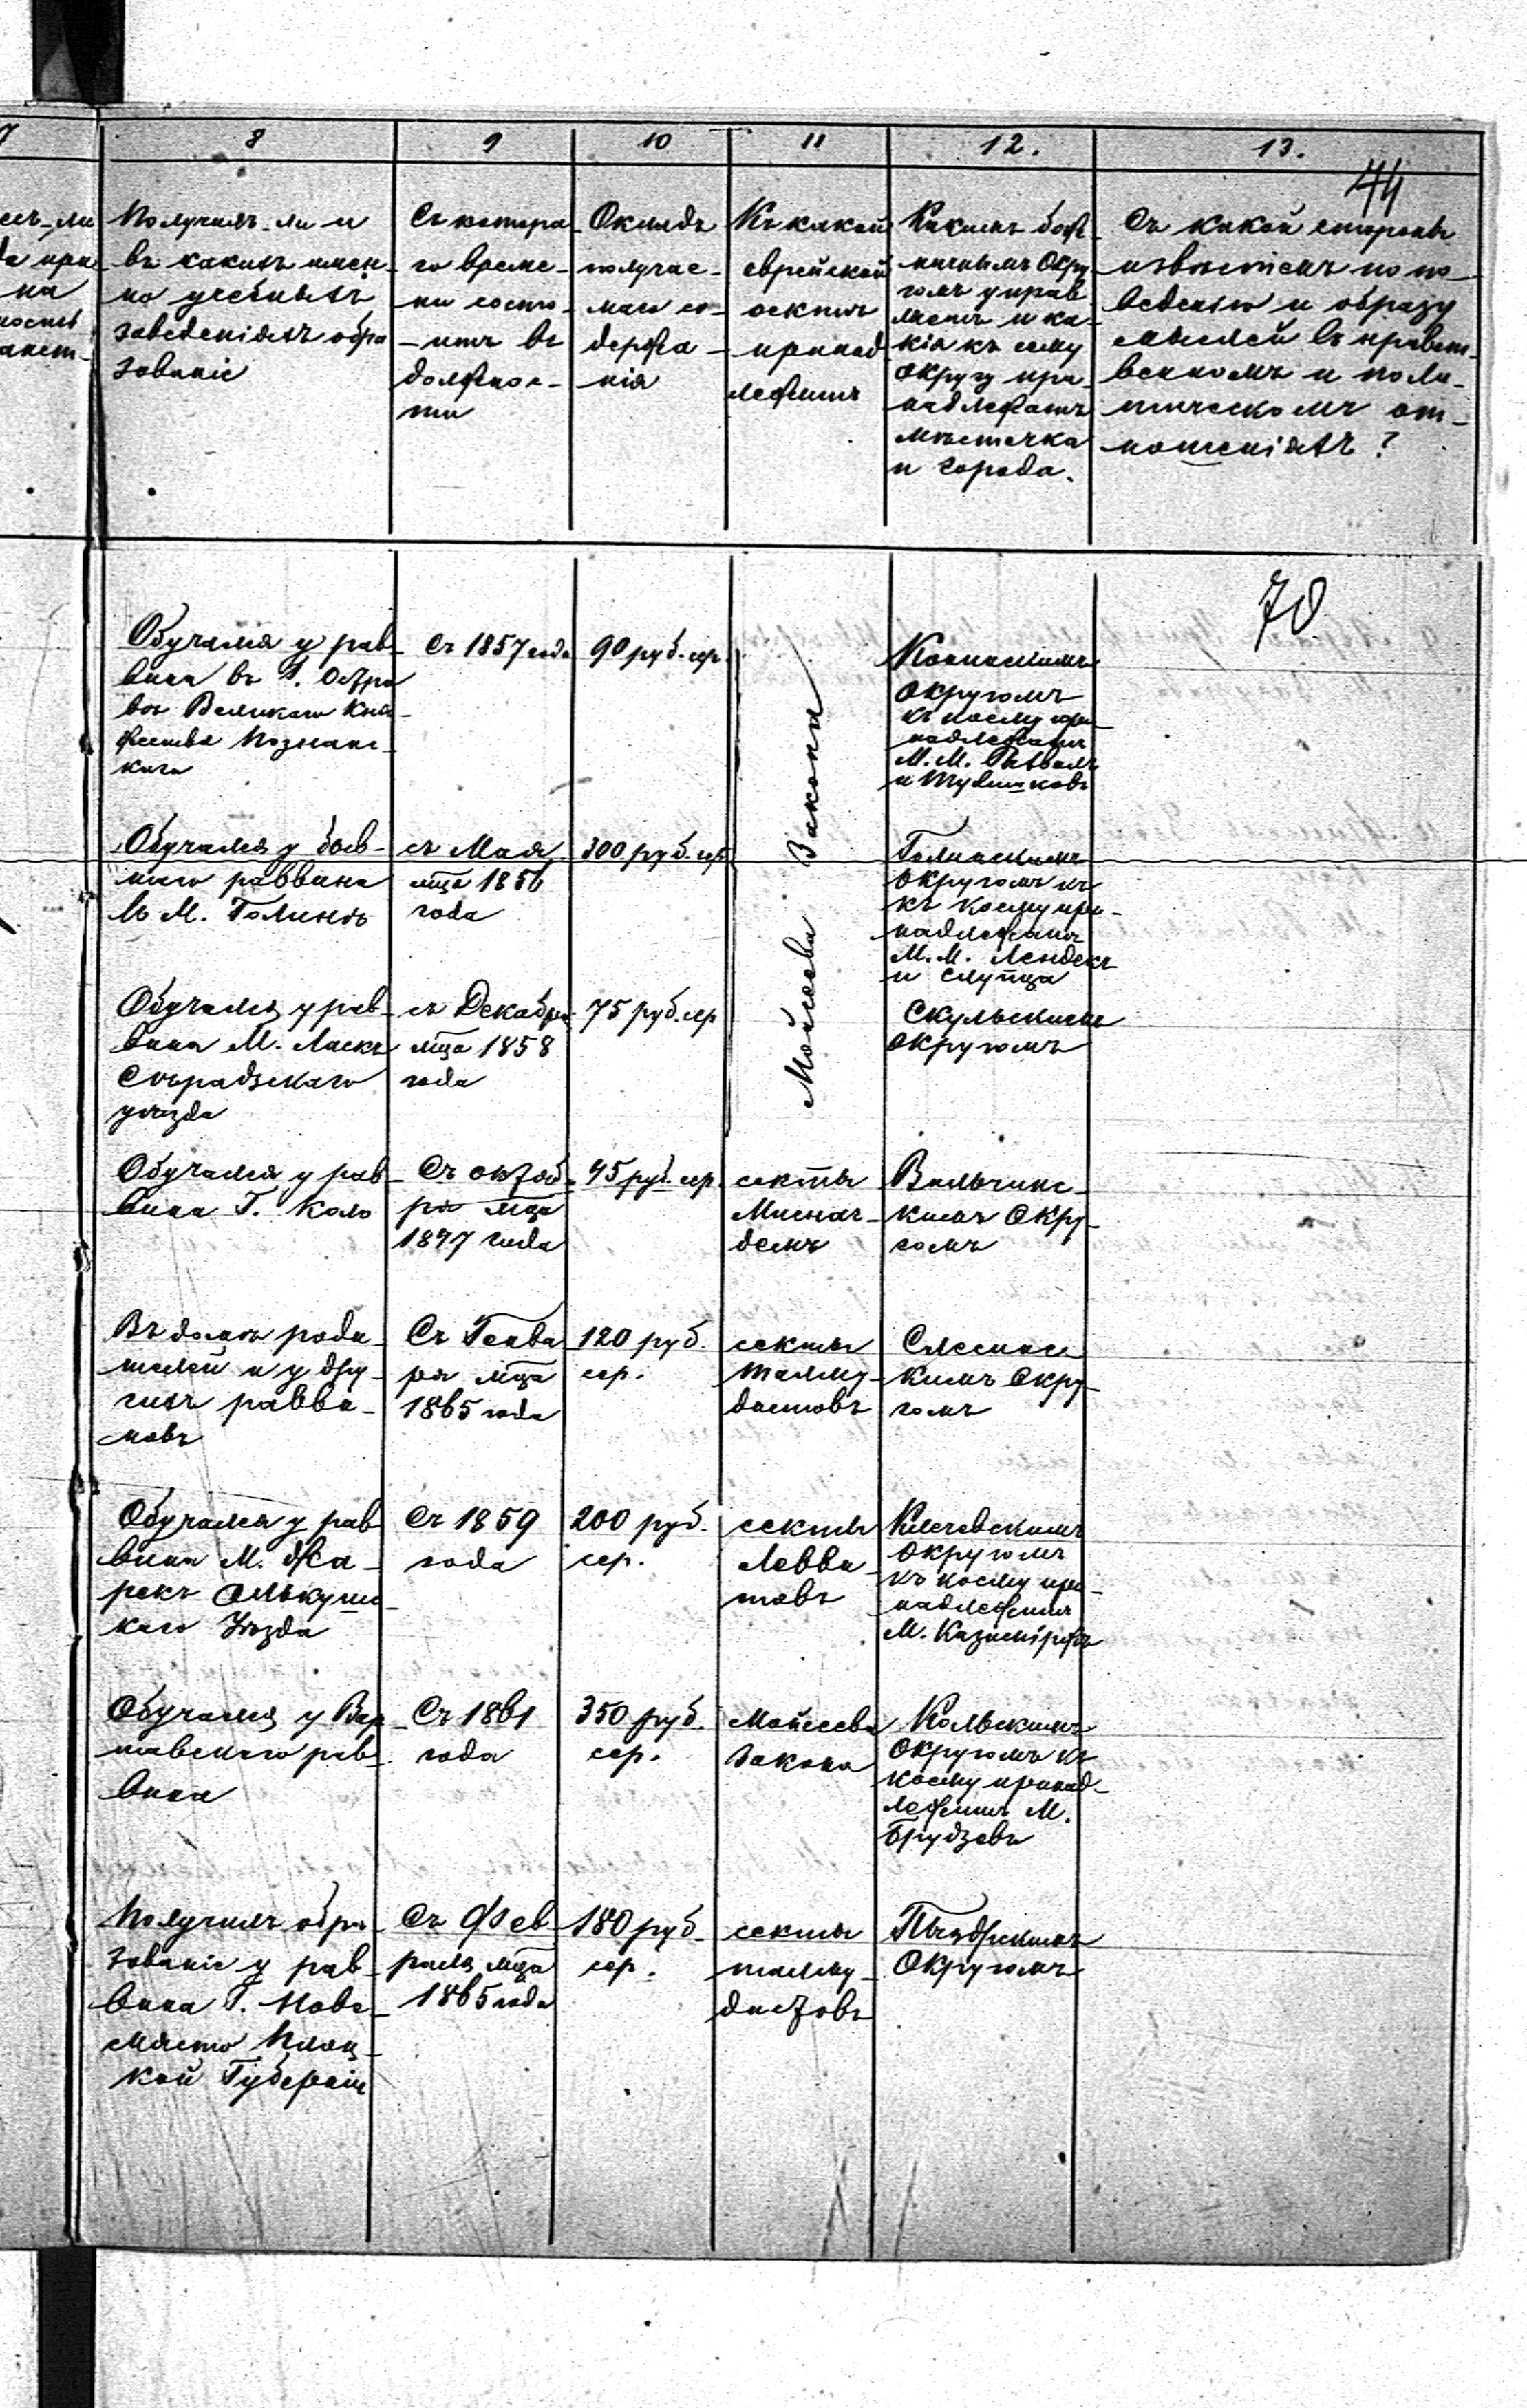 7
8
9
10
11
12.
13.
44
Получилъ-ли и
въ какихъ имен-
но учебныхъ
заведеніяхъ обра
зованіе
Съ котора-
го време-
ни состо-
-итъ въ
должнос-
ти
Окладъ
получае-
маго со-
держа-
нія
Къ какой
еврейской
сектѣ
принад
лежитъ
Какимъ бож
ничнымъ Окру
гомъ управ
ляетъ и ка-
кія къ сему
округу при
надлежатъ
мѣстечка
и города.
Съ какой стороны
извѣстенъ по по-
веденію и образу
мыслей въ нравст-
венномъ и поли-
тическомъ от-
ношеніяхъ?
70
Обучался у рав-
вина въ Г. Остро
вѣ Великаго Кня-
жества Познанс-
каго
Съ 1857 года
90 руб. сер.
Моисеева Закона
Конинскимъ
округомъ
къ коему при-
надлежатъ
М. М.
и Тулишковъ
Обучался у быв-
шаго раввина
въ М. Голинѣ
съ Мая
мца 1856
года
300 руб. сер
Голинскимъ
округомъ къ
къ коему при-
надлежатъ
М. М. Лендекъ
и Слупца
Обучался у рав-
вина М. Ласкъ
Сѣрадзскаго
уѣзда
съ Декабря
мца 1858
года
75 руб. сер
Скульскимъ
округомъ
Обучался у рав-
вина Г. Коло
Съ октяб-
ря мца
1847 года
45 руб. сер
секты
Миснаг-
демъ
Вильчинс-
кимъ Окру-
гомъ
Въ домѣ роди-
телей и у дру-
гихъ равви-
новъ
Съ Генва
ря мца
1865 года
120 руб.
сер.
секты
талму-
дистовъ
Слесинс
кимъ Окру-
гомъ
Обучался у рав
вина М. Жа-
рекъ Олькушс-
каго Уѣзда
Съ 1859
года
200 руб.
сер.
секты
Левви-
товъ
Клечевскимъ
Округомъ
къ коему при-
надлежитъ
М. Казимірж
Обучался у Вар-
шавскаго рав-
вина
Съ 1861
года
350 руб.
сер.
Моисеева
Закона
Кольскимъ
Округомъ къ
коему принад-
лежитъ М.
Брудзевъ
Получилъ обра-
зованіе у рав-
вина Г. Нове-
място Плоц-
кой Губерніи
Съ Фев-
раля мца
1865 года
180 руб
сер.
секты
талму-
дистовъ
Пыздрскимъ
Округомъ